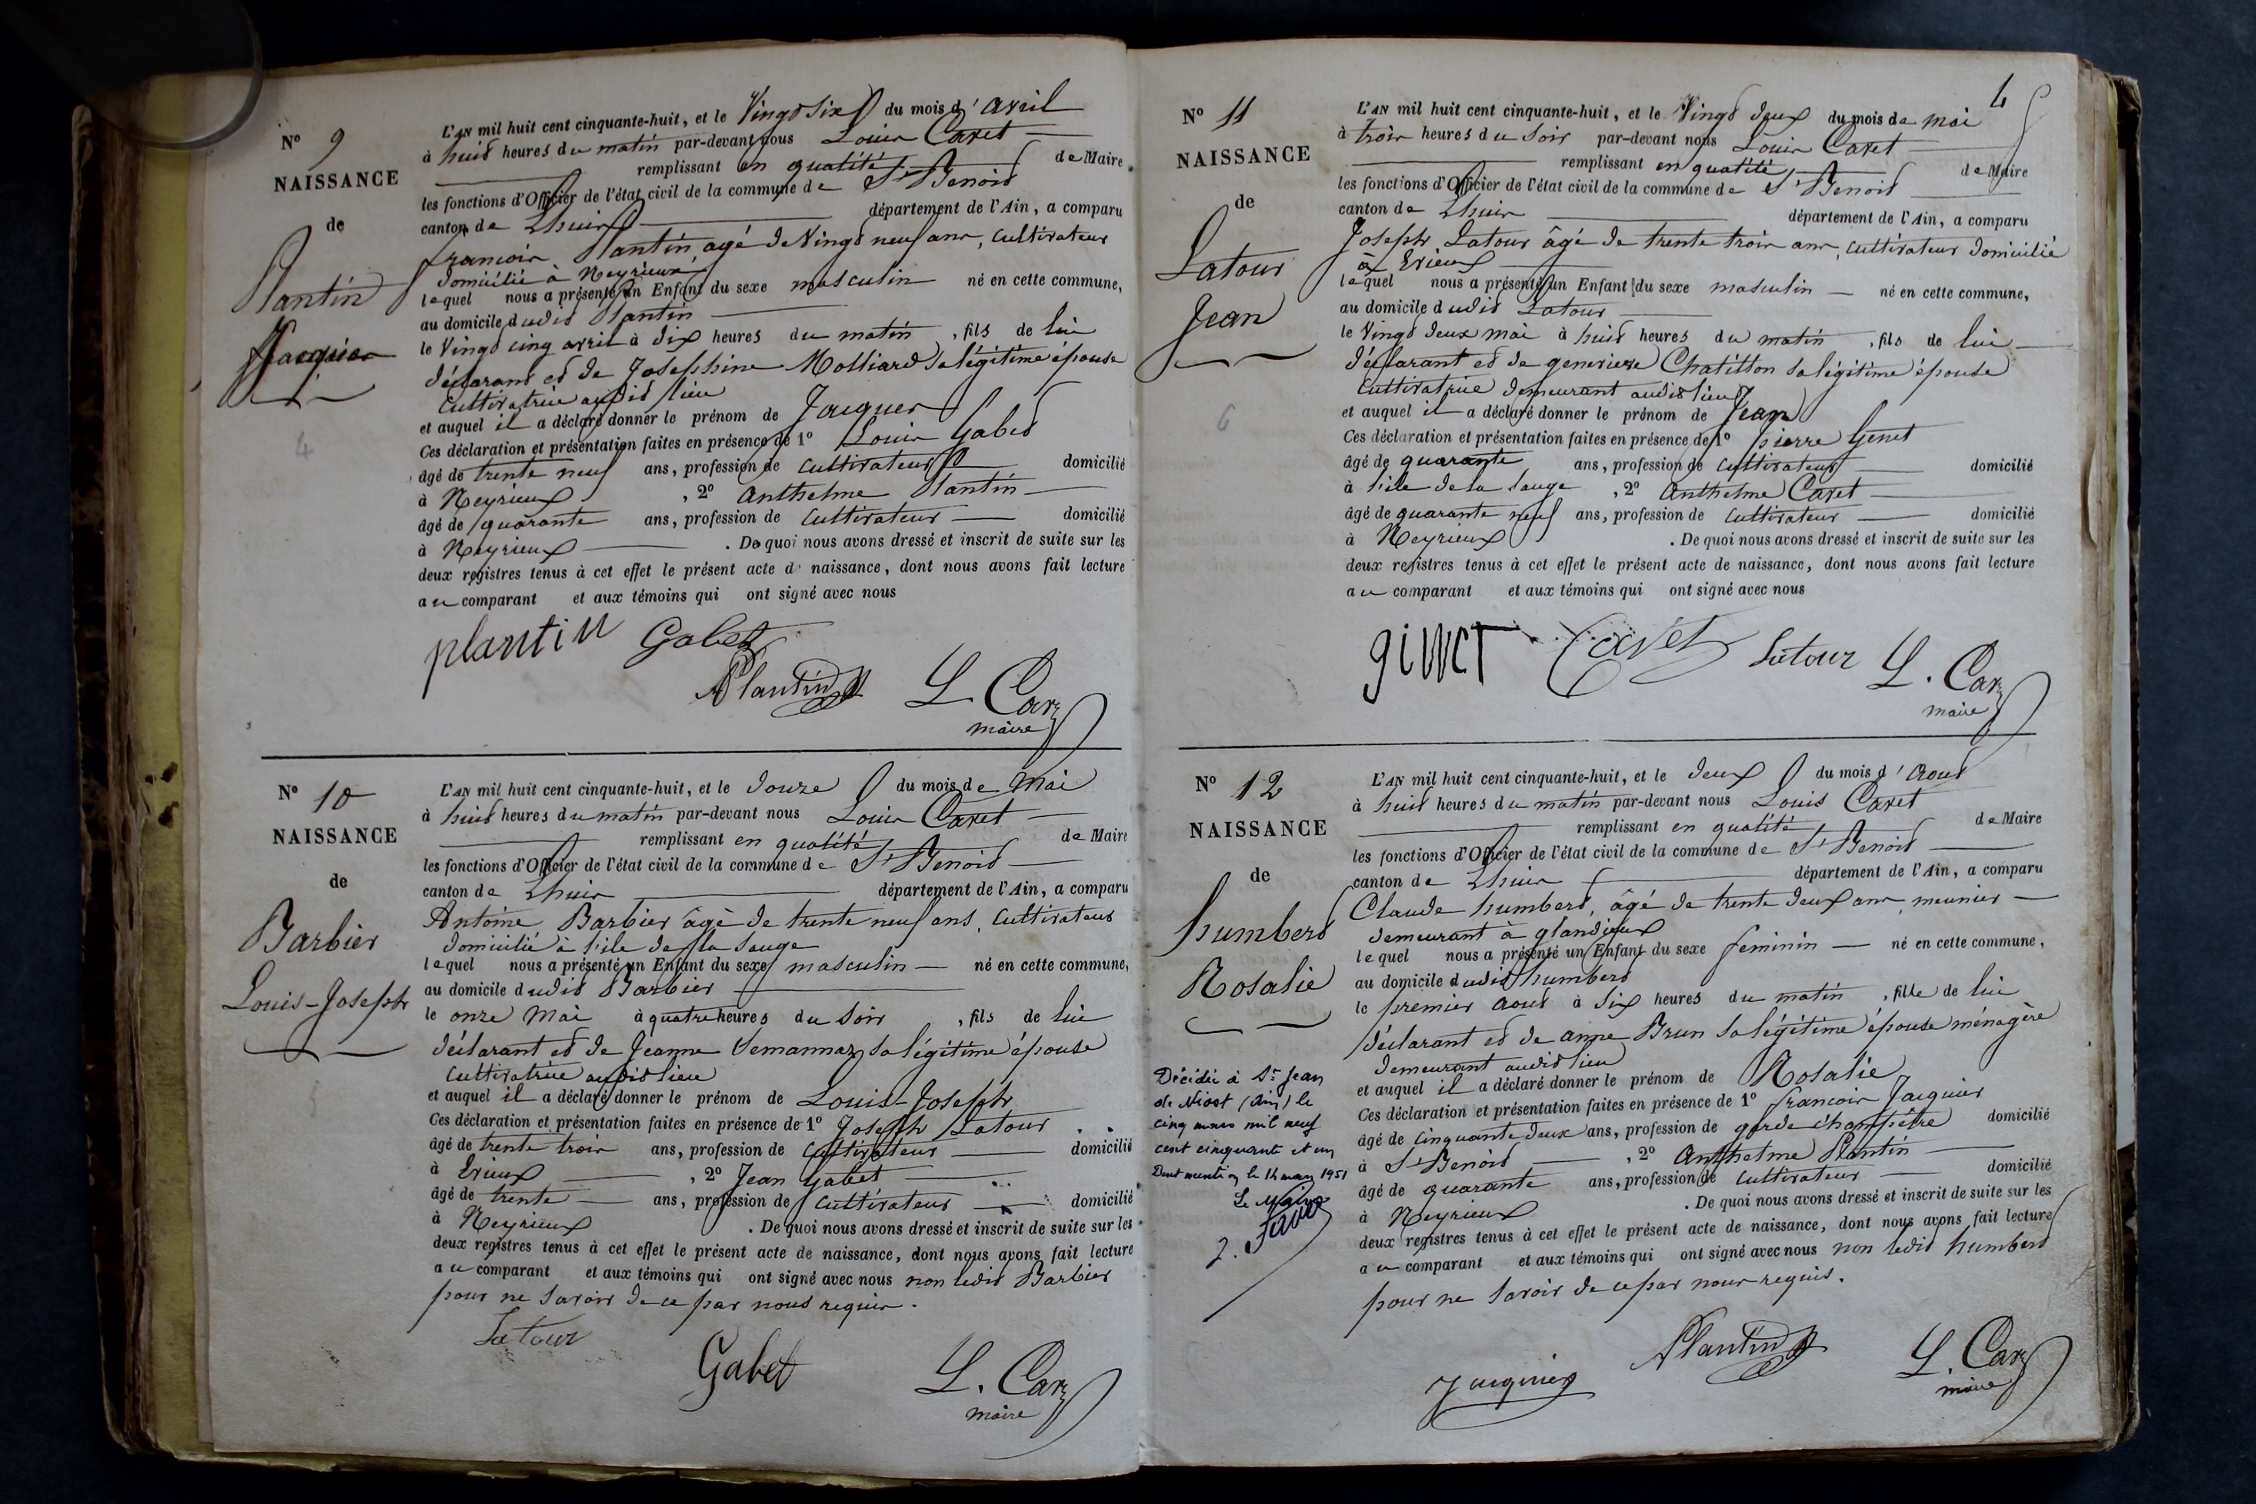 N° 9
NAISSANCE
de
Plantin
Jacques
L'AN mil huit cent cinquante-huit, et le Vingt six du mois d'avril
à huit heures du matin par-devant nous Louis Cavet
remplissant en qualité de Maire
les fonctions d'Officier de l'état civil de la commune de St Benoit
canton de Lhuis département de l'Ain, a comparu
francois Plantin, agé de Vingt neuf ans, Cultivateur
domicilié à Neyrieux
lequel nous a présenté un Enfant du sexe masculin né en cette commune,
au domicile dudit Plantin
le Vingt cinq avril à dix heures du matin, fils de lui
déclarant et de Josephine Molliard sa légitime épouse
Cultivatrice audit lieu
et auquel il a déclaré donner le prénom de Jacques
Ces déclaration et présentation faites en présence de 1° Louis Gabet
âgé de trente neuf ans, profession de cultivateur domicilié
à Neyrieux, 2° Anthelme Plantin
âgé de quarante ans, profession de Cultivateur domicilié
à Neyrieux. De quoi nous avons dressé et inscrit de suite sur les
deux registres tenus à cet effet le présent acte de naissance, dont nous avons fait lecture
au comparant et aux témoins qui ont signé avec nous
plantin Gabet
APlantin L Cavet
maire
4
N° 10
NAISSANCE
de
Barbier
Louis-Joseph
L'AN mil huit cent cinquante-huit, et le douze du mois de Mai
à huit heures du matin par-devant nous Louis Cavet
remplissant en qualité de Maire
les fonctions d'Officier de l'état civil de la commune de St Benoit
canton de Lhuis département de l'Ain, a comparu
Antoine Barbier âgé de trente neuf ans, Cultivateur
domicilié à l'ile de la Sauge
lequel nous a présenté un Enfant du sexe masculin né en cette commune,
au domicile dudit Barbier
le onze Mai à quatre heures du Soir, fils de lui
déclarant et de Jeanne Semannaz sa légitime épouse
Cultivatrice audit lieu
et auquel il a déclaré donner le prénom de Louis-Joseph
Ces déclaration et présentation faites en présence de 1° Joseph Latour
âgé de trente trois ans, profession de Cultivateur domicilié
à Evieux, 2° Jean Gabet
âgé de trente ans, profession de Cultivateur domicilié
à Neyrieux. De quoi nous avons dressé et inscrit de suite sur les
deux registres tenus à cet effet le présent acte de naissance, dont nous avons fait lecture
au comparant et aux témoins qui ont signé avec nous non ledit Barbier
pour ne savoir de ce par nous requis.
Latour
Gabet L. Cavet
maire
4
N° 11
NAISSANCE
de
Latour
Jean
L'AN mil huit cent cinquante-huit, et le Vingt deux du mois de mai
à trois heures du soir par-devant nous Louis Cavet
remplissant en qualité de Maire
les fonctions d'Officier de l'état civil de la commune de St Benoit
canton de Lhuis département de l'Ain, a comparu
Joseph Latour âgé de trente trois ans, Cultivateur domicilié
à Evieux
lequel nous a présenté un Enfant du sexe masculin né en cette commune,
au domicile dudit Latour
le Vingt deux mai à huit heures du matin, fils de lui
déclarant et de genevieve Chatillon sa légitime épouse
Cultivatrice demeurant audit lieu
et auquel il a déclaré donner le prénom de Jean
Ces déclaration et présentation faites en présence de 1° pierre Genet
âgé de quarante ans, profession de Cultivateur domicilié
à l'ile de la Sauge, 2° Anthelme Cavet
âgé de quarante neuf ans, profession de Cultivateur domicilié
à Neyrieux. De quoi nous avons dressé et inscrit de suite sur les
deux registres tenus à cet effet le présent acte de naissance, dont nous avons fait lecture
au comparant et aux témoins qui ont signé avec nous
Cavet Latour L. Cavet
maire
6
N° 12
NAISSANCE
de
humbert
Rosalie
L'AN mil huit cent cinquante-huit, et le deux du mois d'Aout
à huit heures du matin par-devant nous Louis Cavet
remplissant en qualité de Maire
les fonctions d'Officier de l'état civil de la commune de St Benoit
canton de Lhuis département de l'Ain, a comparu
Claude humbert, âgé de trente deux ans, meunier
demeurant à glandieux
lequel nous a présenté un Enfant du sexe feminin né en cette commune,
au domicile dudit humbert
le premier aout à six heures du matin, fille de lui
déclarant et de anne Brun sa légitime épouse ménagère
demeurant audit lieu
et auquel il a déclaré donner le prénom de Rosalie
Ces déclaration et présentation faites en présence de 1° francois Jacquier
âgé de cinquante deux ans, profession de garde champêtre domicilié
à St Benoit, 2° Anthelme Plantin
âgé de quarante ans, profession de Cultivateur domicilié
à Neyrieux. De quoi nous avons dressé et inscrit de suite sur les
deux registres tenus à cet effet le présent acte de naissance, dont nous avons fait lecture
au comparant et aux témoins qui ont signé avec nous non ledit humbert
pour ne savoir de ce par nous requis.
Jacquier APlantin L. Cavet
maire
Décédée à St Jean
de Niost (Ain) le
cinq mars mil neuf
cent cinquante et un
Dont mention le 14 mars 1951
Le Maire